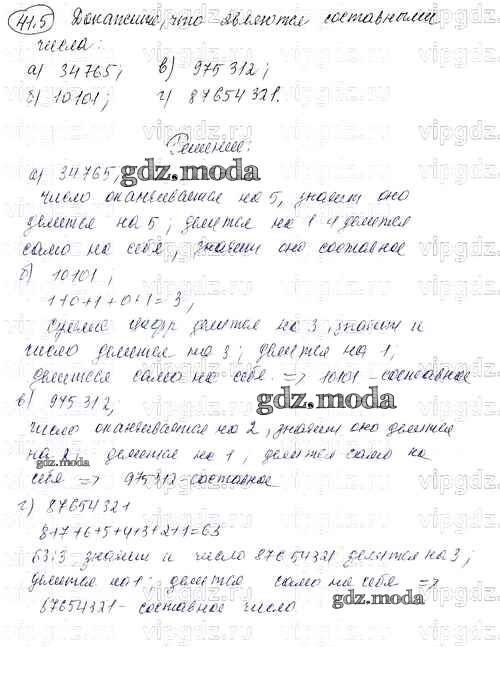 41.5 Докажите, что являются составными
числа:
а) 34765; в) 975312;
б) 10101; г) 87654321.
Решение:
а) 34765,
gdz.moda
число оканчивается на 5, значит оно
делится на 5; делится на 1 и делится
само на себя, значит оно составное
б) 10101;
1+0+1+0+1=3,
сумма цифр делится на 3, значит и
число делится на 3; делится на 1;
делится само на себя. => 10101 - составное
gdz.moda
в) 975312;
число оканчивается на 2, значит оно делится
на 2 делится на 1, делится само на
gdz.moda
себя => 975312-составное
г) 87654321
8+7+6+5+4+3+2+1=63
63:3 значит и число 87654321 делится на 3;
делится на 1; делится само на себя =>
87654321- составное число.
gdz.moda